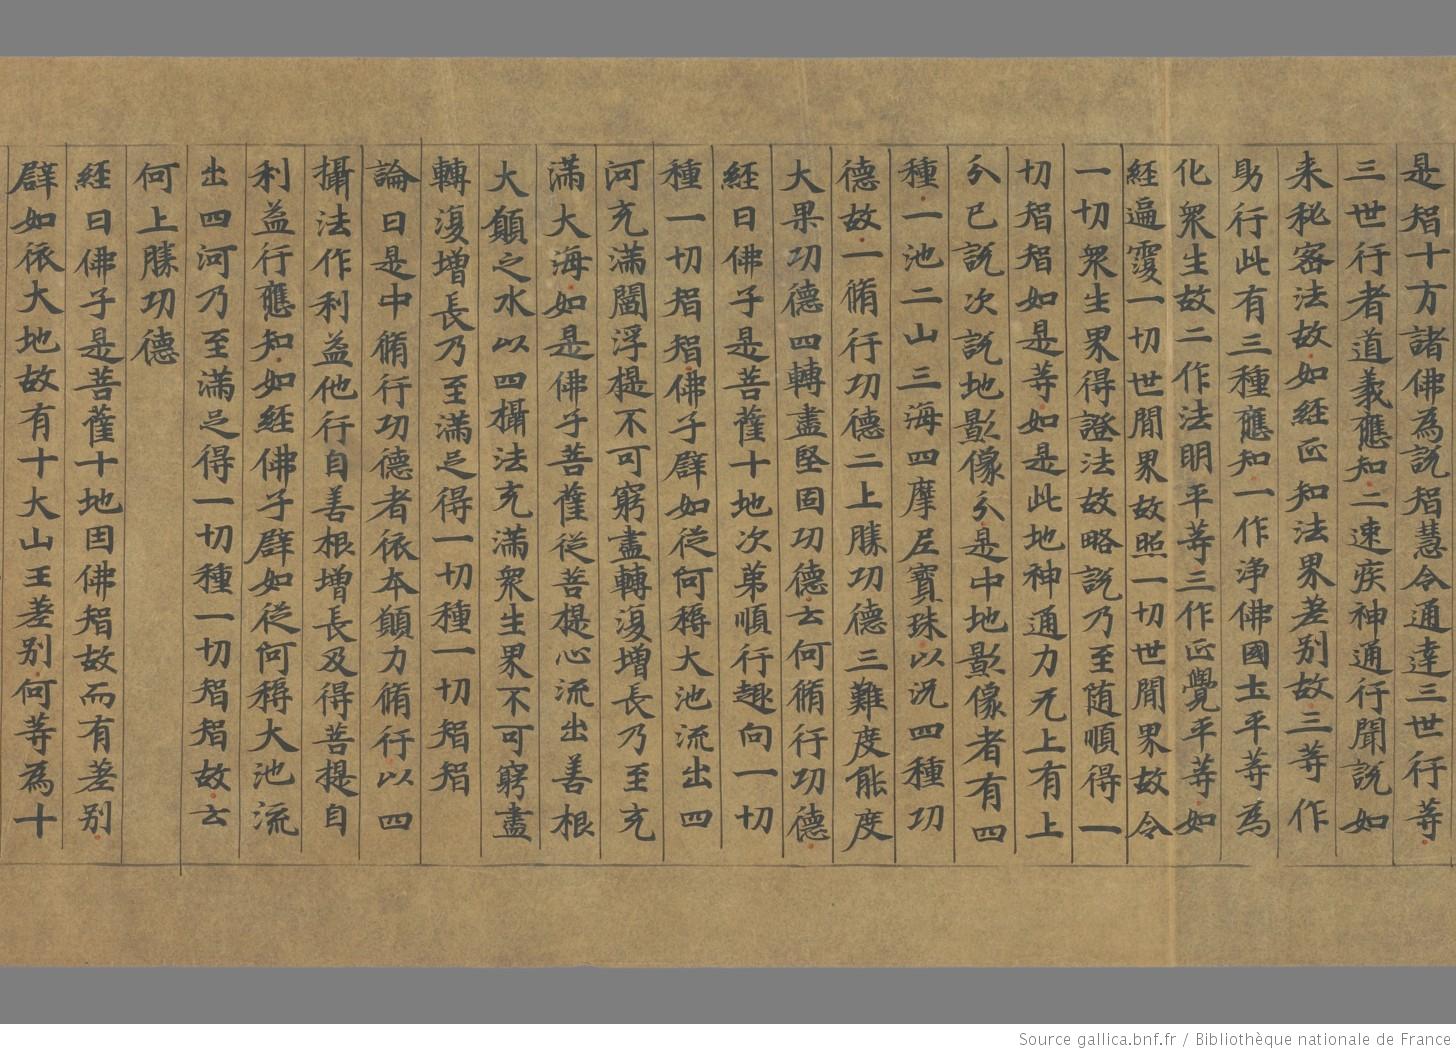 是智十方諸佛為說智慧令通達三世行等
三世行者道義應知二速疾神通行聞說如
来秘密法故如經正知法界差别故三等作
助行此有三種應知一作淨佛國土平等為
化衆生故二作法明平等三作正覺平等如
經遍覆一切世間界故照一切世間界故令
一切衆生界得證法故略說乃至随順得一
切智智如是等如是此地神通力无上有上
分已說次說地影像分是中地影像者有四
種一池二山三海四摩尼寶珠以況四種功
德故一脩行功德二上勝功德三難度能度
大果功德四轉盡堅固功德云何脩行功德
經曰佛子是菩薩十地次第順行趣向一切
種一切智智佛子辟如從阿耨大池流出四
河充滿閻浮提不可窮盡轉復增長乃至充
滿大海如是佛子菩薩從菩提心流出善根
大願之水以四攝法充滿衆生界不可窮盡
轉復增長乃至滿足得一切種一切智智
論曰是中脩行功德者依本願力脩行以四
攝法作利益他行自善根增長及得菩提自
利益行應知如經佛子辟如從阿耨大池流
出四河乃至滿足得一切種一切智智故云
何上勝功德
經曰佛子是菩薩十地因佛智故而有差别
辟如依大地故有十大山王差别何等為十
Source gallica.bnf.fr / Bibliothèque nationale de France